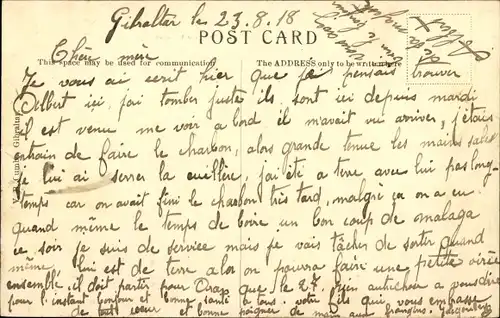 Gibraltar le 23.8.18
POST CARD
This space may be used for communication
The ADDRESS only to be written here
Chère mère
Je vous ai écrit hier que je pensais trouver
Albert ici, j'ai tomber juste ils sont ici depuis mardi
il est venue me voir a bord il m'avait vu arriver, j'étais
entrain de faire le charbon, alors grande tenue les mains sales
je lui ai serrer la cuillère, j'ai été a terre avec lui pas long-
temps car on avait fini le charbon très tard, malgré ça on a eu
quand même le temps de boire un bon coup de malaga
ce soir je suis de service mais je vais tâcher de sortir quand
même, lui est de terre alor on pourra faire une petite virée
ensemble, il doit partir pour Oran que le 27. rien autre chose a vous dire
pour l'instant bonjour et bonne santé a tous. votre fils qui vous embrasse
de tout cœur et bonne poigner de main aux frangins.
Gibraltar